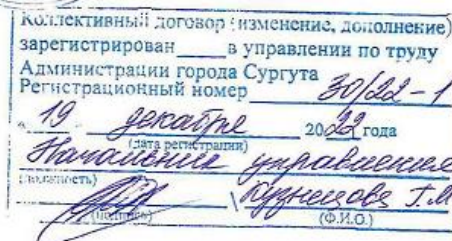 Коллективный договор (изменение, дополнение)
зарегистрирован ____ в управлении по труду
Администрации города Сургута
Регистрационный номер 30/22-1
« 19 декабря 2022 года
(дата регистрации)
Начальник управления
(должность)
Кузнецова Г.М
(подпись) (Ф.И.О.)